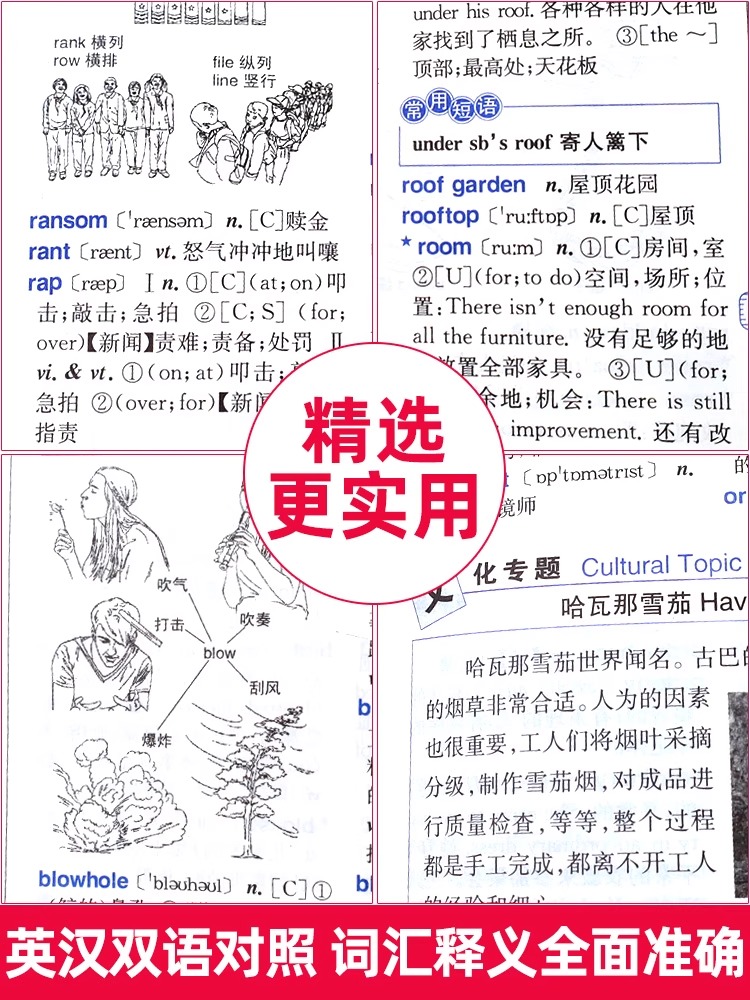 rank 横列
row 横排
file 纵列
line 竖行
ransom〔ˈrænsəm〕n.[C]赎金
rant〔rænt〕vt. 怒气冲冲地叫嚷
rap〔ræp〕Ⅰ n. ①[C](at;on)叩
击;敲击;急拍 ②[C;S] (for;
over)【新闻】责难;责备;处罚 Ⅱ
vi. & vt. ①(on;at)叩击;
急拍 ②(over;for)【新闻
指责
under his roof. 各种各样的人在他
家找到了栖息之所。 ③[the ～]
顶部;最高处;天花板
常用短语
under sb's roof 寄人篱下
roof garden n.屋顶花园
rooftop〔ˈruːftɒp〕n.[C]屋顶
*room〔ruːm〕n. ①[C]房间,室
②[U](for;to do)空间,场所;位
置:There isn't enough room for
all the furniture. 没有足够的地
放置全部家具。 ③[U](for;
余地;机会:There is still
improvement. 还有改
精选
更实用
吹气
打击
吹奏
blow
刮风
爆炸
blowhole〔ˈbləʊhəʊl〕n.[C]①
〔ɒpˈtɒmətrɪst〕n.
镜师
or
化专题 Cultural Topic
哈瓦那雪茄 Hav
哈瓦那雪茄世界闻名。古巴的
的烟草非常合适。人为的因素
也很重要,工人们将烟叶采摘
分级,制作雪茄烟,对成品进
行质量检查,等等,整个过程
都是手工完成,都离不开工人
英汉双语对照 词汇释义全面准确